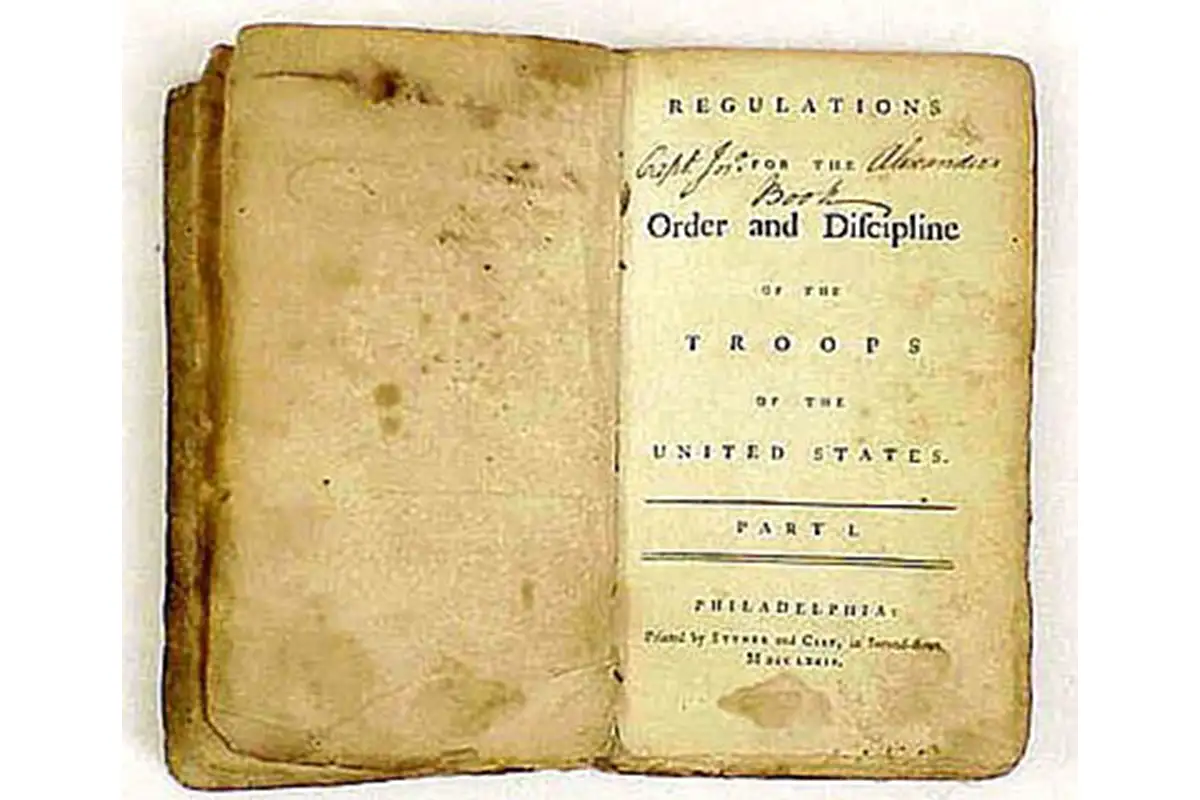 REGULATIONS
Capt Jno. FOR THE Alexanders
Book
Order and Diſcipline
OF THE
TROOPS
OF THE
UNITED STATES.
PART I.
PHILADELPHIA:
Printed by STYNER and CIST, in Second-ſtreet.
M DCC LXXIX.